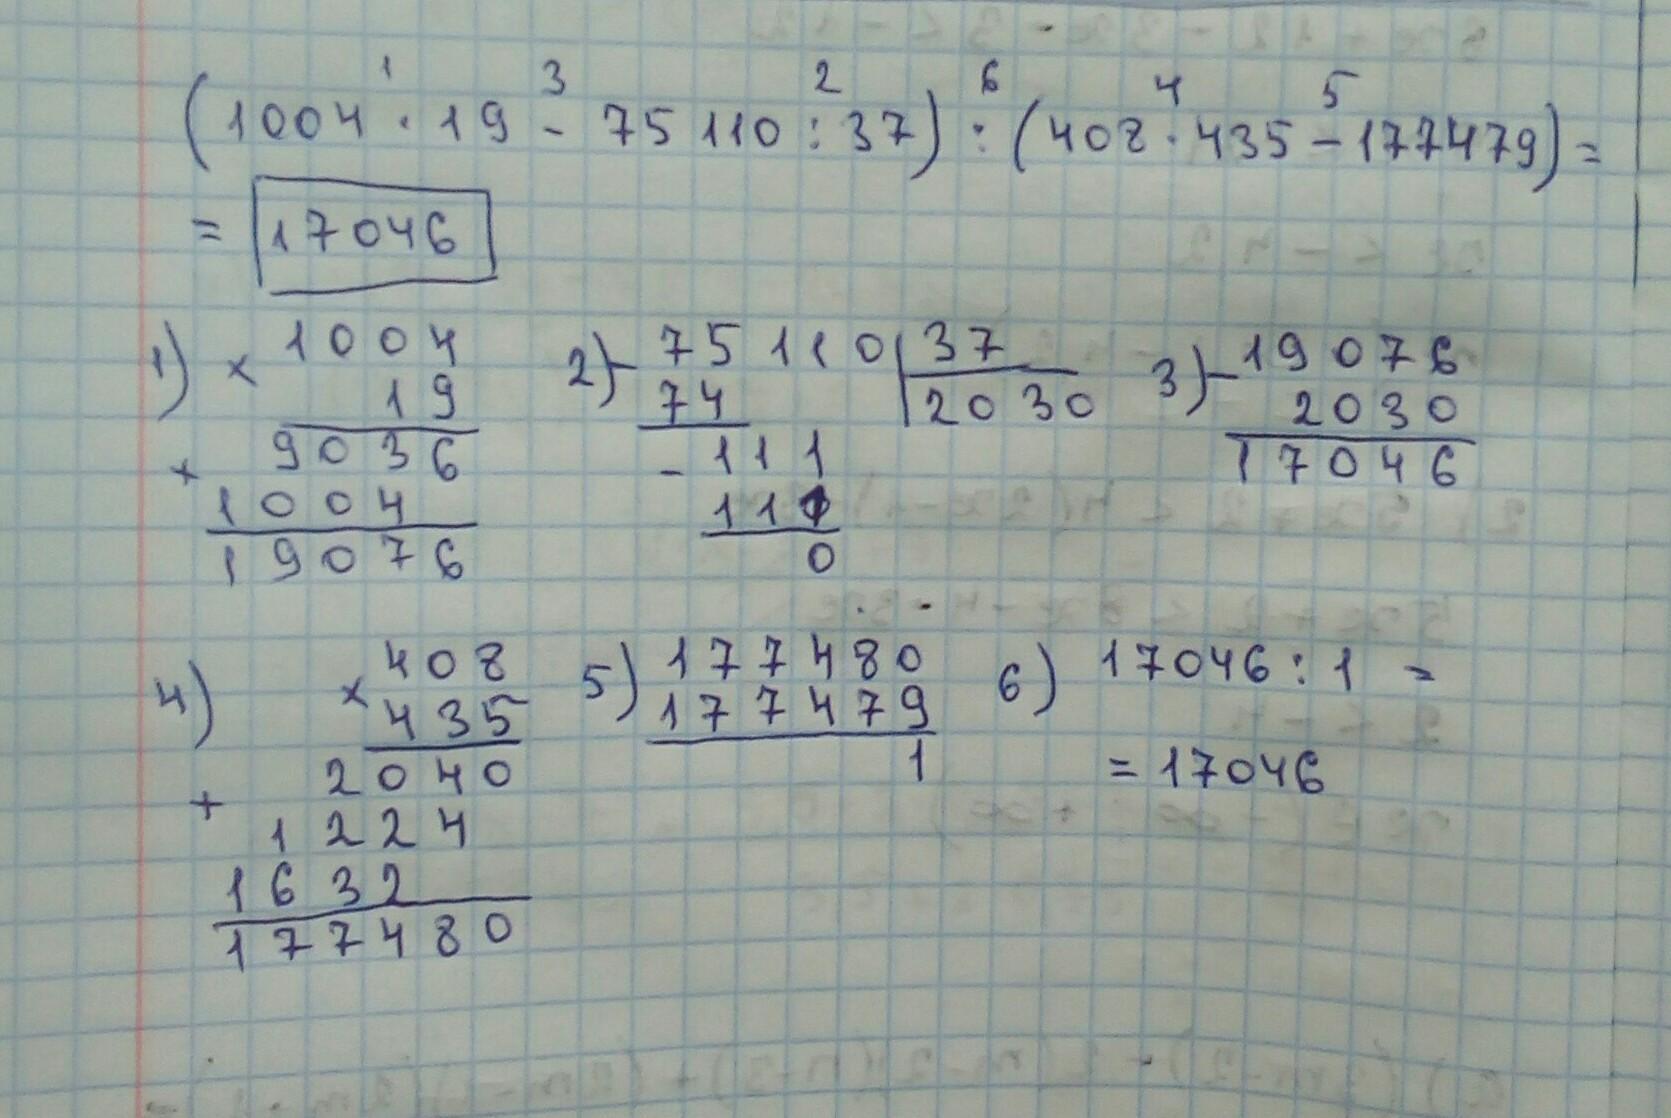 1 3 2 6 4 5
(1004 · 19 - 75110 : 37) : (408 · 435 - 177479) =
= 17046
1) × 1004
19
+ 9036
1004
19076
2) - 75110 | 37
74 | 2030
- 111
111
0
3) - 19076
2030
17046
4) × 408
435
+ 2040
1224
1632
177480
5) 177480
177479
1
6) 17046 : 1 =
= 17046